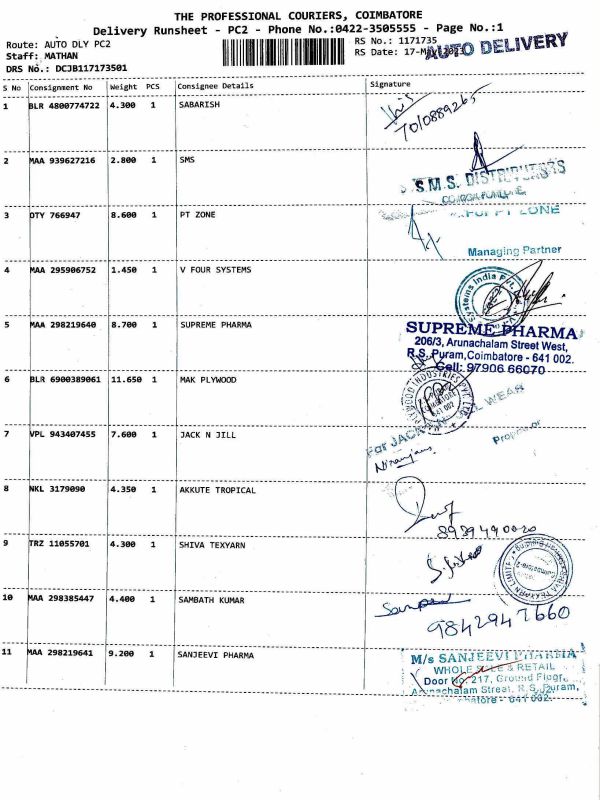 THE PROFESSIONAL COURIERS, COIMBATORE
Delivery Runsheet - PC2 - Phone No.:0422-3505555 - Page No.:1
Route: AUTO DLY PC2
RS No.: 1171735
Staff: MATHAN
RS Date: 17-May-2023
AUTO DELIVERY
DRS No.: DCJB117173501
S No Consignment No Weight PCS Consignee Details Signature
1 BLR 4800774722 4.300 1 SABARISH
7010889265
2 MAA 939627216 2.800 1 SMS
S.M.S. DISTRIBUTORS
3 OTY 766947 8.600 1 PT ZONE
For PT ZONE
Managing Partner
4 MAA 295906752 1.450 1 V FOUR SYSTEMS
Systems India Pvt.
5 MAA 298219640 8.700 1 SUPREME PHARMA
SUPREME PHARMA
206/3, Arunachalam Street West,
R.S. Puram, Coimbatore - 641 002.
Cell: 97906 66070
6 BLR 6900389061 11.650 1 MAK PLYWOOD
PLYWOOD INDUSTRIES PVT. LTD
641 002
7 VPL 943407455 7.600 1 JACK N JILL
For JACK WEAR
Proprietor
Niranjana
8 NKL 3179090 4.350 1 AKKUTE TROPICAL
8939490020
9 TRZ 11055701 4.300 1 SHIVA TEXYARN
TEXYARN LIMITED
10 MAA 298385447 4.400 1 SAMBATH KUMAR
9842947660
11 MAA 298219641 9.200 1 SANJEEVI PHARMA
M/s SANJEEVI PHARMA
WHOLE SALE & RETAIL
Door No. 217, Ground Floor,
Arunachalam Street, R.S. Puram,
Coimbatore - 641 002.